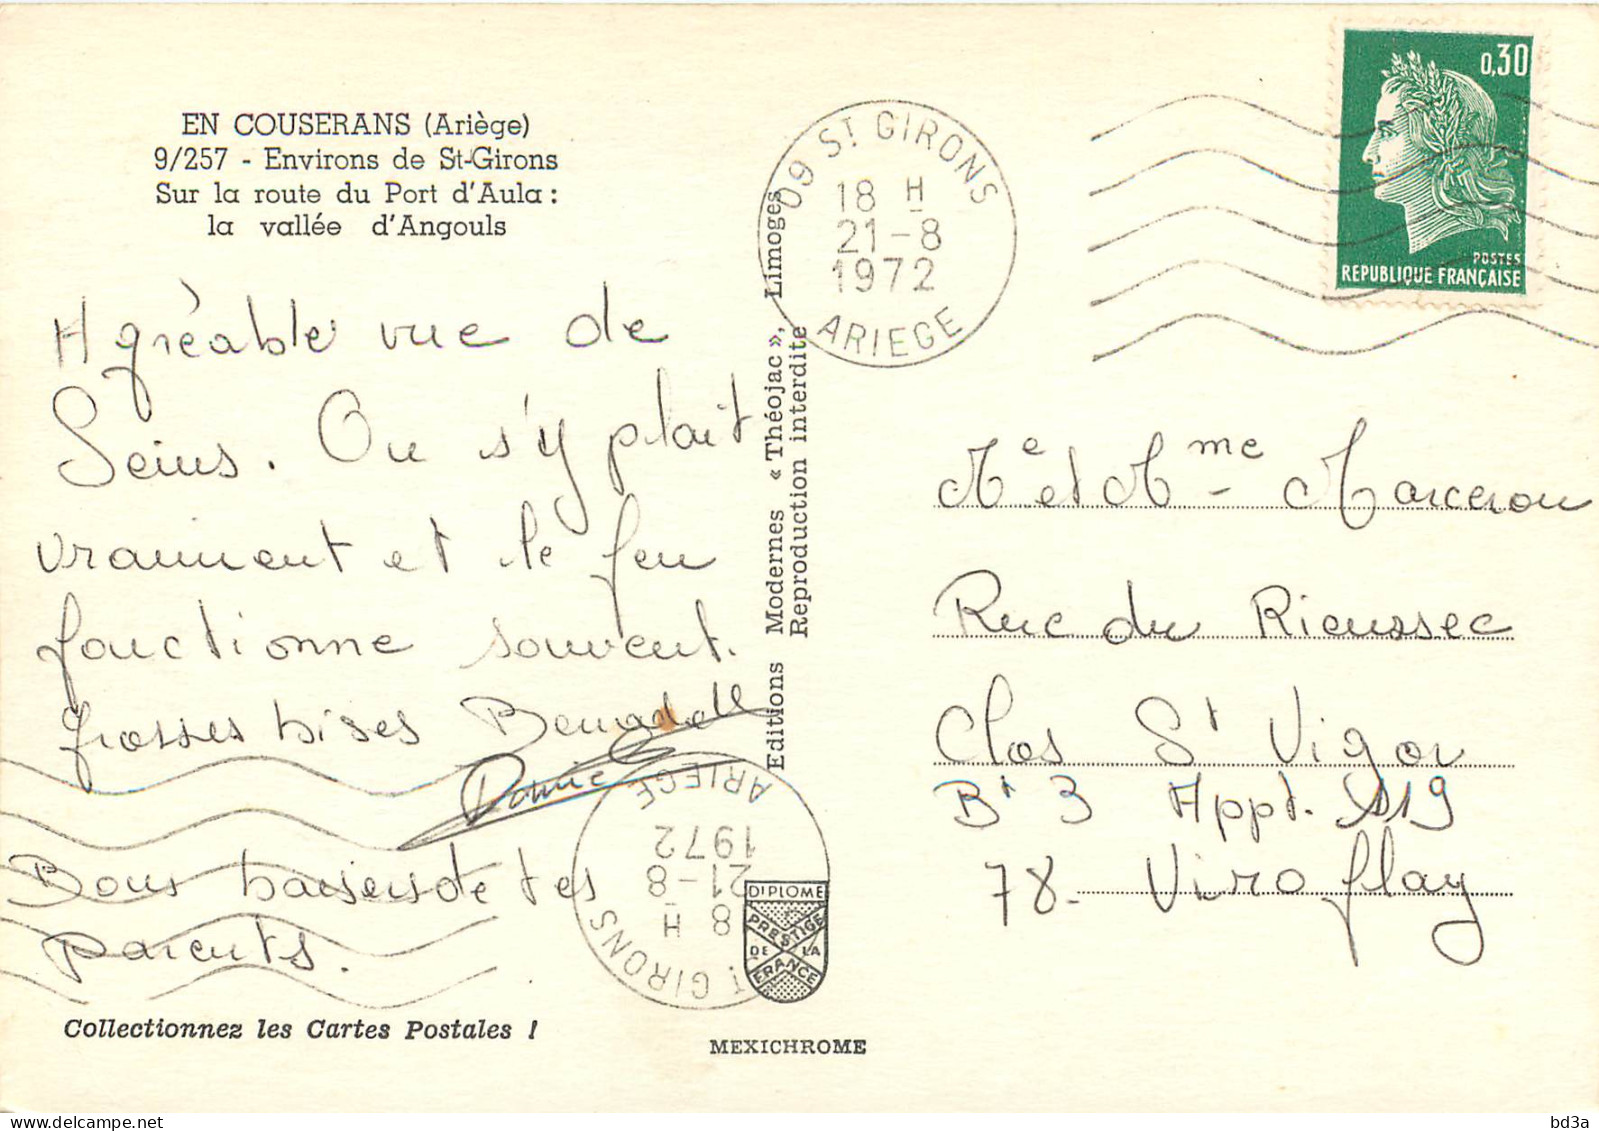 EN COUSERANS (Ariège)
9/257 - Environs de St-Girons
Sur la route du Port d'Aula :
la vallée d'Angouls
Agréable vue de
Seius. On s'y plait
vraiment et le feu
fonctionne souvent.
grosses bises Bernadette
Bons baisers de tes
parents.
Collectionnez les Cartes Postales !
Editions Modernes « Théojac », Limoges
Reproduction interdite
09 ST GIRONS
18 H
21-8
1972
ARIEGE
0,30
POSTES
REPUBLIQUE FRANÇAISE
Mr et Mme Marceron
Rue du Rieussec
Clos St Vigor
Bt 3 Appt. 119
78 - Viroflay
ARIEGE
1972
21-8
8 H
T GIRONS
DIPLOME
PRESTIGE
DE LA
FRANCE
MEXICHROME
bd3a